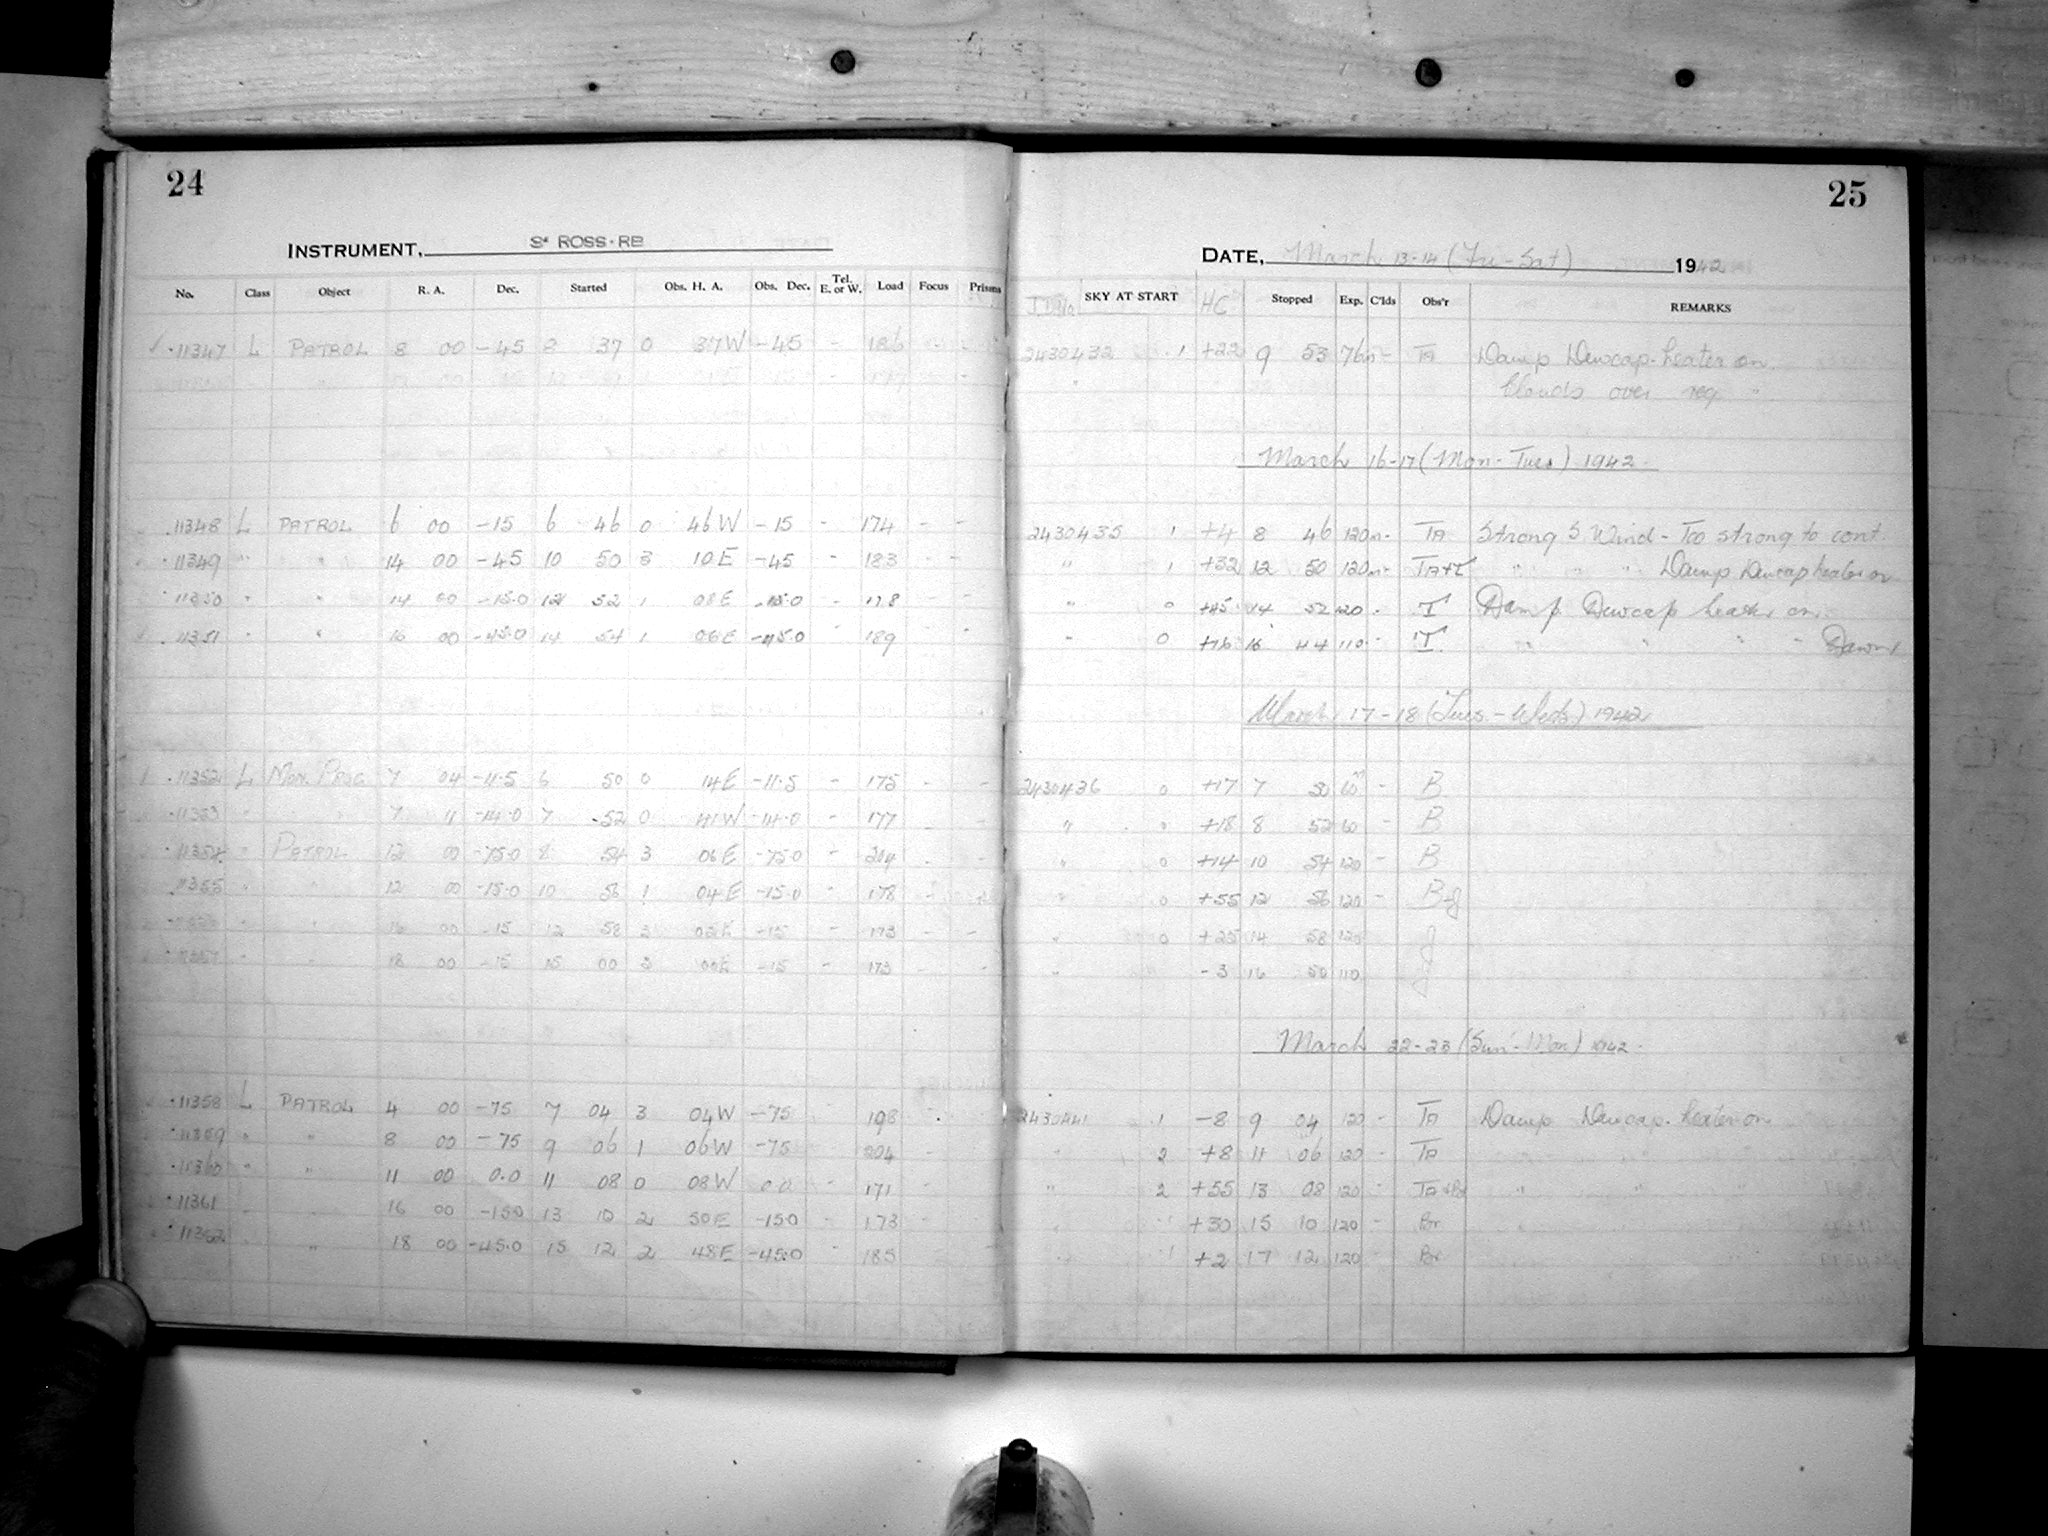 24
INSTRUMENT, 3" ROSS-RB
No. Class Object R. A. Dec. Started Obs. H. A. Obs. Dec. Tel. E. or W. Load Focus Prisms
✓ 11347 L PATROL 8 00 -45 8 37 0 37W -45 - 186 - -
11348 L PATROL 6 00 -15 6 46 0 46W -15 - 174 - -
11349 " " 14 00 -45 10 50 3 10E -45 - 183 - -
11350 " " 14 00 -15.0 12 52 1 08E -15.0 - 178 -
11351 " 16 00 -45.0 14 54 1 06E -45.0 - 189 -
11352 L MON PROG 7 04 -11.5 6 50 0 14E -11.5 - 175 - -
11353 " " 7 11 -14.0 7 52 0 41W -14.0 - 177 - -
11354 " PATROL 12 00 -75.0 8 54 3 06E -75.0 - 204 - -
11355 " " 12 00 -15.0 10 56 1 04E -15.0 - 178 -
" 16 00 -15 12 58 3 02E -15 - 173 - -
11357 " 18 00 -15 15 00 3 00E -15 - 173 - -
11358 L PATROL 4 00 -75 7 04 3 04W -75 198 -
11359 " " 8 00 -75 9 06 1 06W -75 - 204 -
11360 " " 11 00 0.0 11 08 0 08W 0.0 - 171 -
11361 " 16 00 -15.0 13 10 2 50E -15.0 - 173 -
11362 " 18 00 -45.0 15 12 2 48E -45.0 185 -
25
DATE, March 13-14 (Fri-Sat) 1942
SKY AT START HC Stopped Exp. C'lds Obs'r REMARKS
2430432 1 +22 9 53 76m - TA Damp Dewcap-heater on
Clouds over reg
March 16-17 (Mon-Tues) 1942
2430435 1 +4 8 46 120m - TA Strong S Wind - Too strong to cont.
" 1 +32 12 50 120m - TA+T " " " Damp Dewcap heater on
" 0 +45 14 52 120 - T Damp Dewcap heater on
" 0 +16 16 44 110 - T " " " " Dawn
March 17-18 (Tues-Weds) 1942
2430436 0 +17 7 50 60m - B
" 0 +18 8 52 60 - B
" 0 +14 10 54 120 - B
" 0 +55 12 56 120 - B+J
" 0 +25 14 58 120 J
" -3 16 50 110 J
March 22-23 (Sun-Mon) 1942
2430441 1 -8 9 04 120 - TA Damp Dewcap-heater on
" 2 +8 11 06 120 - TA
" 2 +55 13 08 120 - TA+Br " " "
" 1 +30 15 10 120 - Br
" 1 +2 17 12 120 - Br